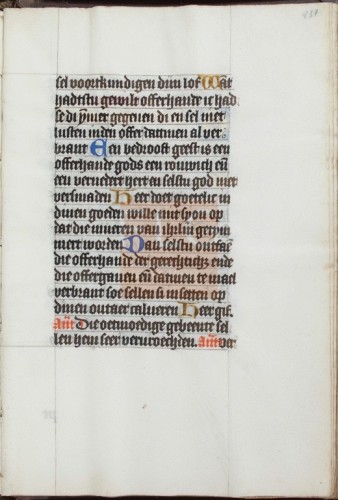 sel voortkundigen dijn lof Wat
hadtstu gewilt offerhande ic had
se di ymer gegeven di en sel niet
lusten inden offer datmen al ver
brant Een vedroeft geest is een
offerhande gods een rouwich eñ
een vernedert hert en selstu god niet
versmaden Heer doet goetelic in
dinen goeden wille mit syon op
dat die mueren van ihrlm getym
mert worden Dan selstu ontfaen
die offerhand der gerechticheit ende
die offergaven eñ datmen te mael
verbrant soe sellen si n setten op
dinen outaer calveren Heer gif.
Añt Die oetmoedige gebeente sel
len hem seer vervroechden. Añt ver